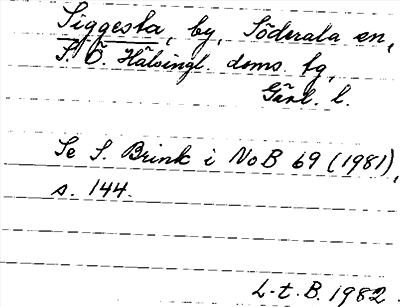 Siggesta, by, Söderala sn,
S. Ö. Hälsingl. doms. tg,
Gävl. l.
Se S. Brink i NoB 69 (1981),
s. 144.
L-t. B. 1982.